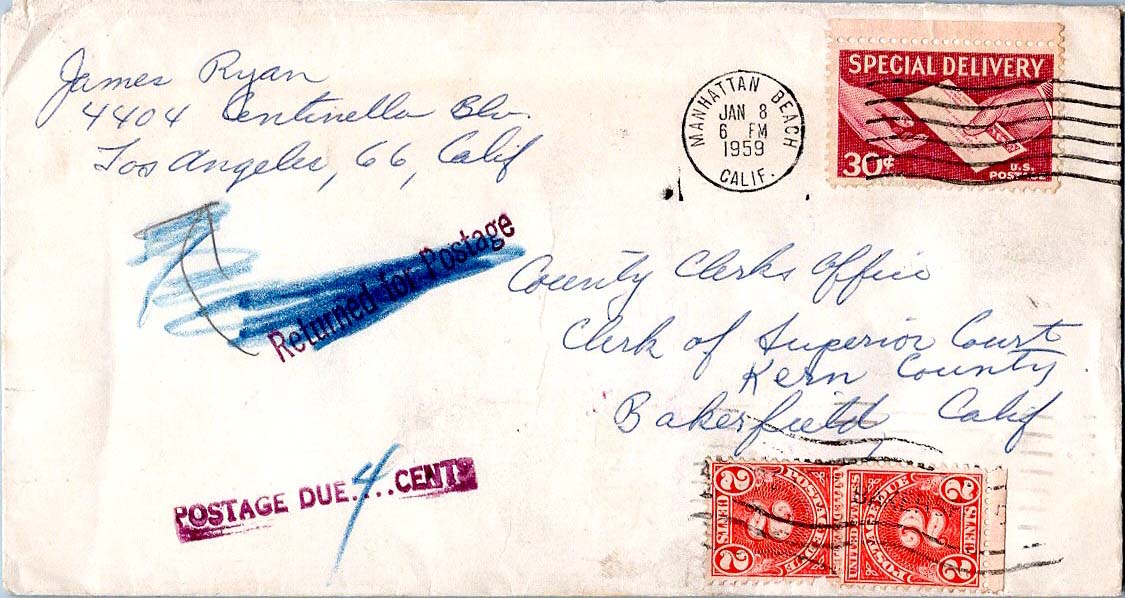 James Ryan
4404 Centinella Blv.
Los Angeles, 66, Calif
MANHATTAN BEACH
JAN 8
6 PM
1959
CALIF.
SPECIAL DELIVERY
30¢
U.S. POSTAGE
Returned for Postage
County Clerks Office
Clerk of Superior Court
Kern County
Bakerfield, Calif
POSTAGE DUE 4 CENTS
2 CENTS 2
POSTAGE DUE
2
2 CENTS 2
POSTAGE DUE
2